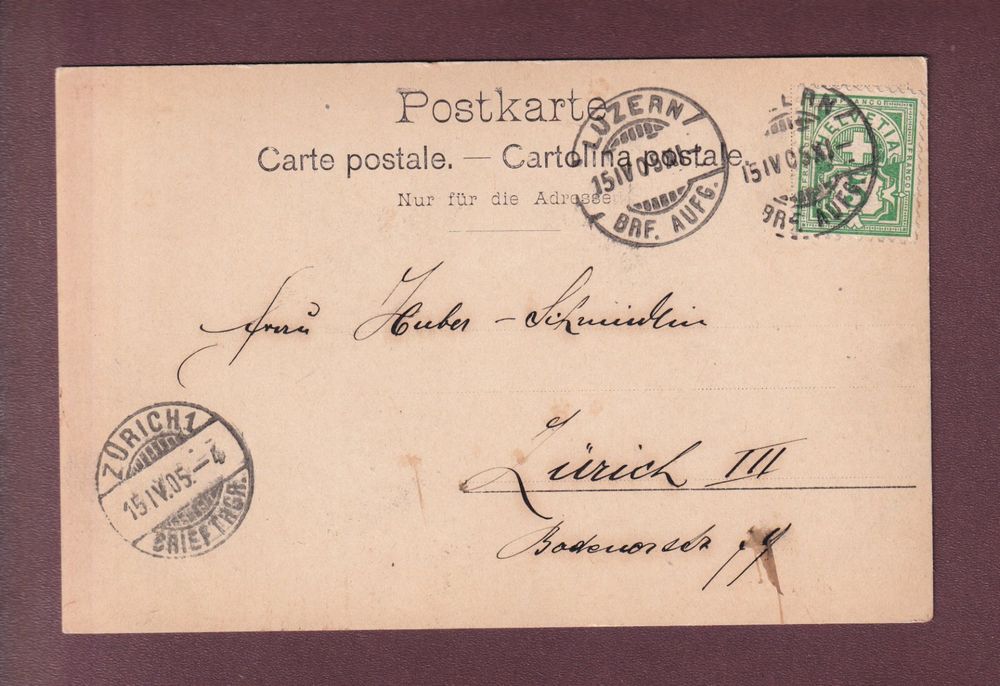 Postkarte
Carte postale. — Cartolina postale.
Nur für die Adresse
LUZERN
15 IV 05 XI
BRF. AUFG.
LUZERN
15 IV 05 XI
BRF. AUFG.
FRANCO
HELVETIA
FRANCO
Frau Huber - Schmidlin
Zürich III
ZÜRICH 1
15.IV.05.
BRIEFTRGR.